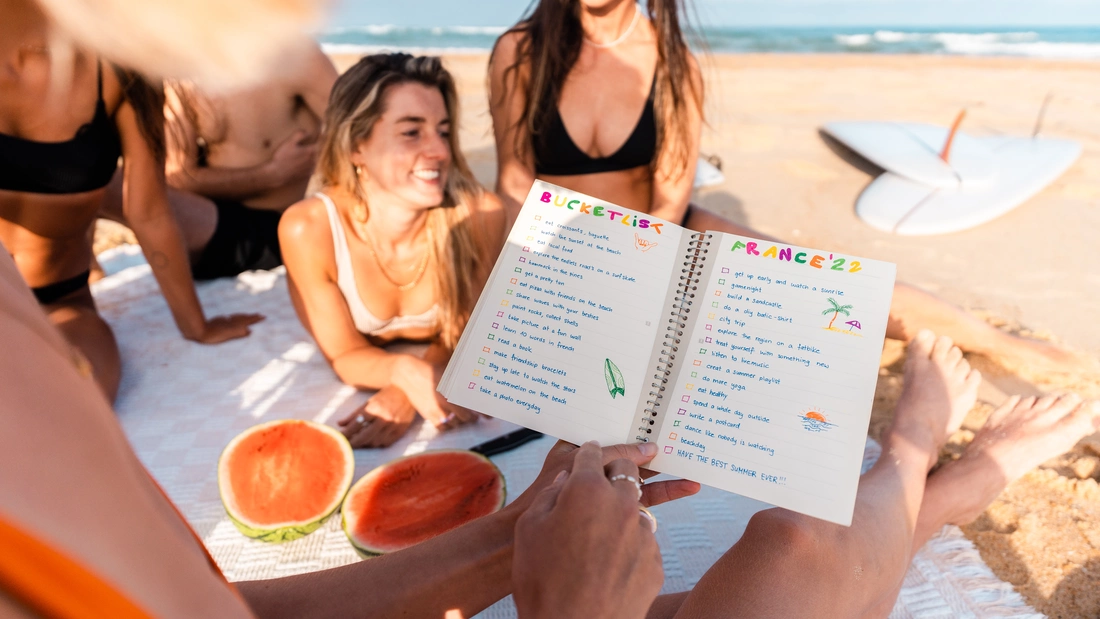 BUCKETLIST
eat croissants, baguette
watch the sunset at the beach
eat local food
explore the endless roads on a surfskate
hammock in the pines
get a pretty tan
eat pizza with friends on the beach
share waves with your besties
paint rocks, collect shells
take picture at a fun wall
learn 10 words in french
read a book
make friendship bracelets
stay up late to watch the stars
eat watermelon on the beach
take a photo everyday
FRANCE'22
get up early and watch a sunrise
gamenight
build a sandcastle
do a diy batic-shirts
city trip
explore the region on a fatbike
treat yourself with something new
listen to livemusic
creat a summer playlist
do more yoga
eat healthy
spend a whole day outside
write a postcard
dance like nobody is watching
beachday
HAVE THE BEST SUMMER EVER!!!